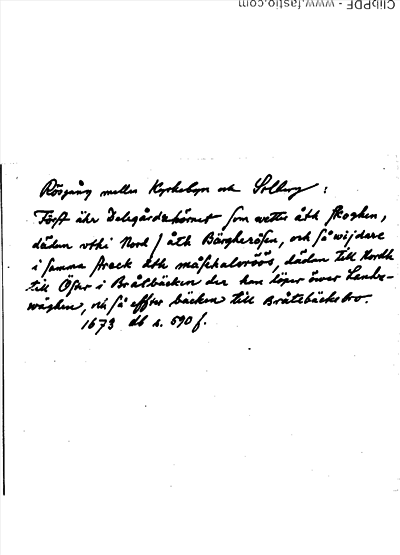 ClibPDF - www.fastio.com
Rösgång mellan Kyrkobyn och Solberg :
Först ähr Delsgårdzhörnet som wetter åth skoghen,
däden uthi Nord / åth Bärgherösen, och så wijdare
i samma streck åth mäskalsröös, däden till Nordh
till Öster i Bråtbäcken der han löper öwer Landz-
wäghen, och så effter bäcken till Bråtbäcksbro.
1673 db s. 590 f.